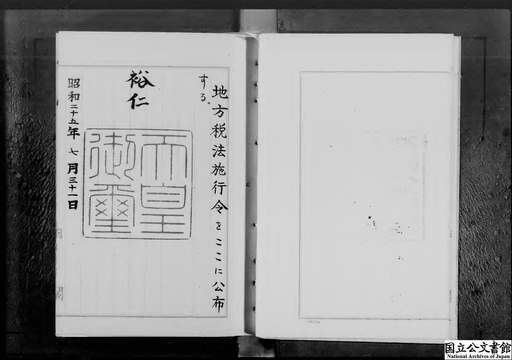 地方税法施行令をここに公布
する。
裕仁
天皇
御璽
昭和二十五年七月三十一日
国立公文書館
National Archives of Japan